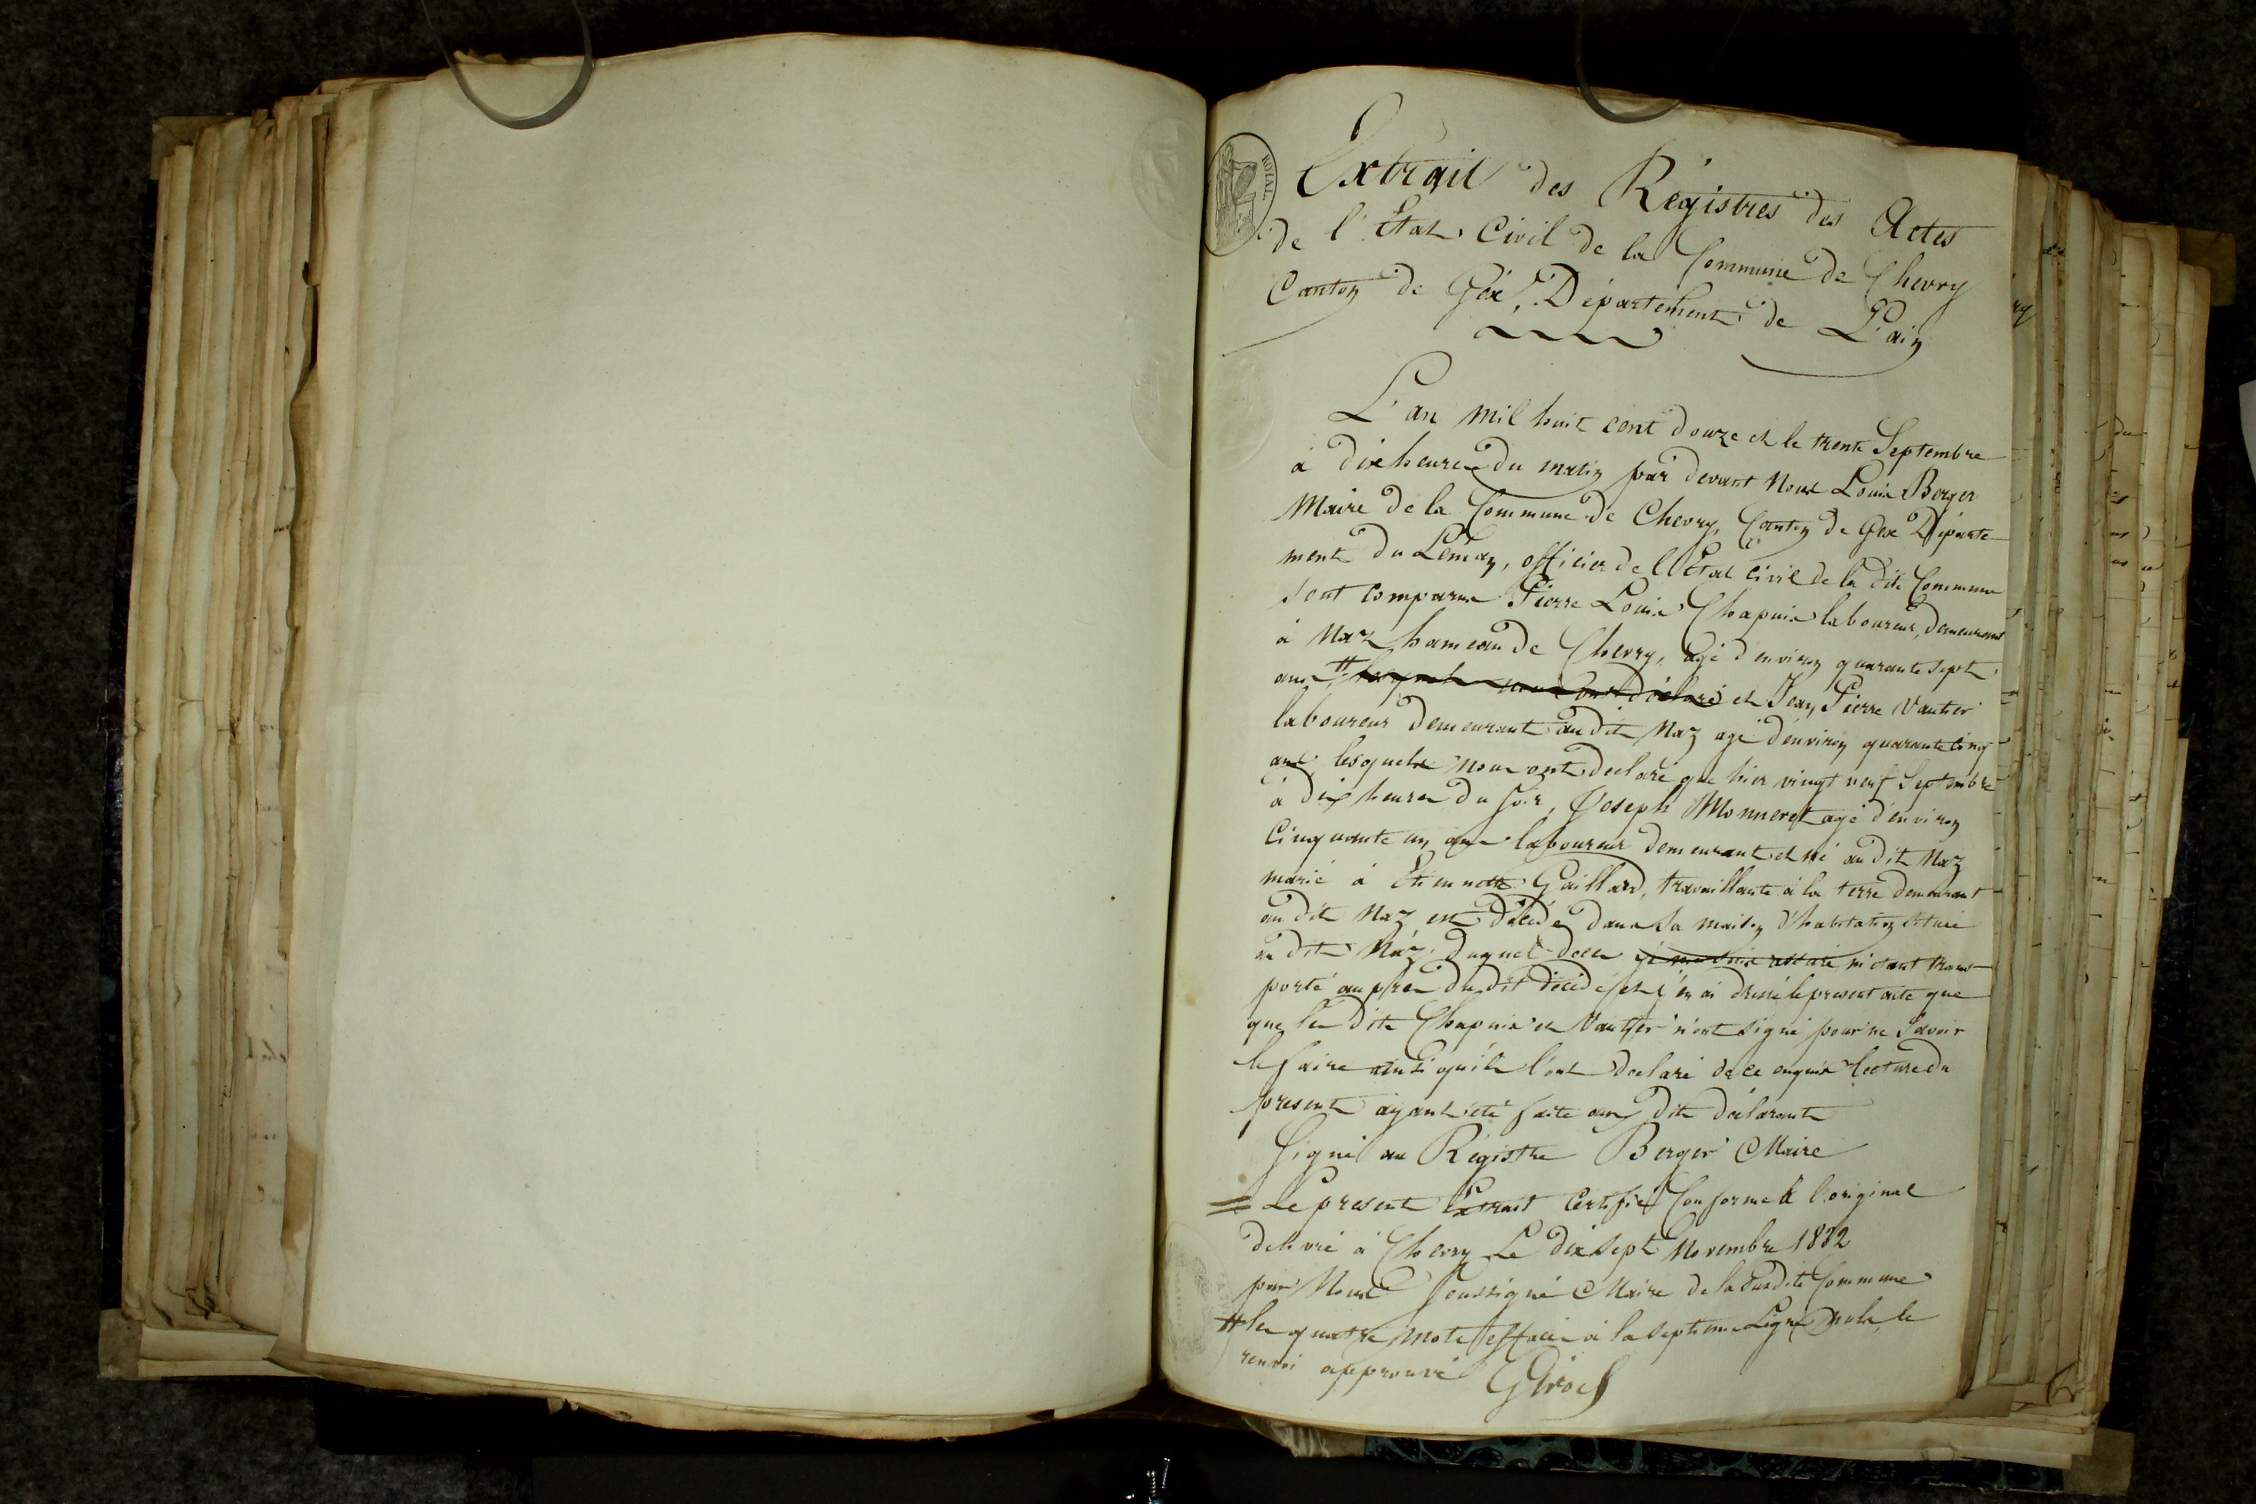 ROYAL
Extrait des Régistres des Actes
de l'État Civil de la Commune de Chevry
Canton de Gex, Département de L'ain
L'an mil huit cent douze et le trente Septembre
à dix heures du matin par devant Nous Louis Berger
Maire de la Commune de Chevry, Canton de Gex Départe
ment du Leman, officier de l'État civil de la dite Commune
sont comparus Pierre Louis Chapuis laboureur, demeurant
à Naz hameau de Chevry, agé d'environ quarante sept
ans # lesquels nous ont déclaré et Jean Pierre Vautier
laboureur demeurant au dit Naz agé d'environ quarante cinq
ans lesquels nous ont déclaré que hier vingt neuf Septembre
à dix heures du soir, Joseph Monneret agé d'environ
Cinquante un ans laboureur demeurant et né au dit Naz
marié à Étiennette Gaillard, travaillante à la terre demeurant
au dit Naz est décédé dans sa maison d'habitation située
au dit Naz, duquel décès je me suis assuré m'étant trans
porté auprès du dit décédé et j'en ai dressé le present acte que
que les dits Chapuis et Vautier n'ont signé pour ne savoir
le faire ainsi qu'ils l'ont déclaré de ce enquis lecture du
present ayant été faite aux dits déclarants
Signé au Régistre Berger Maire
Le present Extrait Certifié Conforme à l'original
delivré à Chevry Le dix sept Novembre 1832
par Nous Soussigné Maire de la susdite Commune
# les quatre mots effacés à la septieme Ligne nuls le
renvoi approuvé Girod